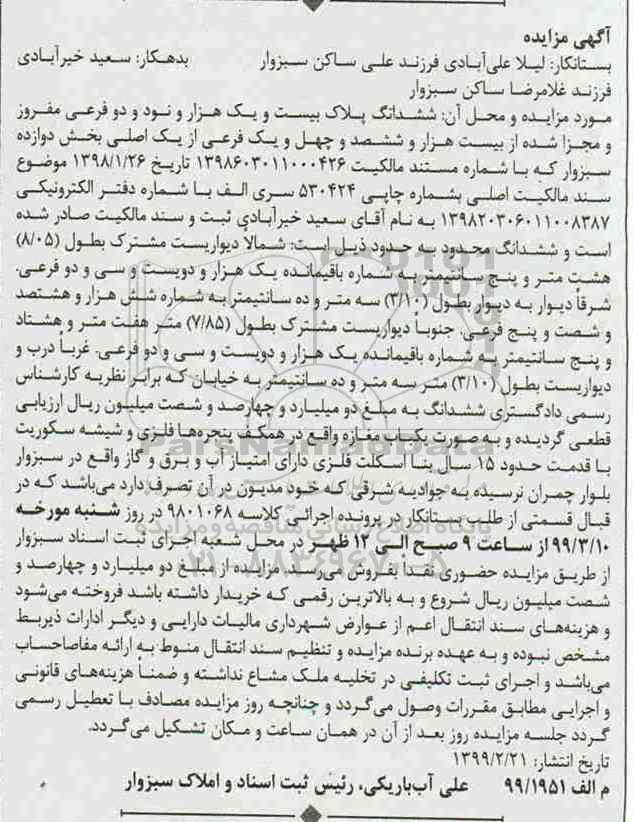 آگهی مزایده
بستانکار: لیلا علی‌آبادی فرزند علی ساکن سبزوار بدهکار: سعید خیرآبادی
فرزند غلامرضا ساکن سبزوار
مورد مزایده و محل آن: ششدانگ پلاک بیست و یک هزار و نود و دو فرعی مفروز
و مجزا شده از بیست هزار و ششصد و چهل و یک فرعی از یک اصلی بخش دوازده
سبزوار که با شماره مستند مالکیت ۱۳۹۸۶۰۳۰۱۱۰۰۰۴۲۶ تاریخ ۱۳۹۸/۱/۲۶ موضوع
سند مالکیت اصلی بشماره چاپی ۵۳۰۴۲۴ سری الف با شماره دفتر الکترونیکی
۱۳۹۸۲۰۳۰۶۰۱۱۰۰۸۳۸۷ به نام آقای سعید خیرآبادی ثبت و سند مالکیت صادر شده
است و ششدانگ محدود به حدود ذیل است: شمالاً دیواریست مشترک بطول (۸/۰۵)
هشت متر و پنج سانتیمتر به شماره باقیمانده یک هزار و دویست و سی و دو فرعی.
شرقاً دیوار به دیوار بطول (۳/۱۰) سه متر و ده سانتیمتر به شماره شش هزار و هشتصد
و شصت و پنج فرعی. جنوباً دیواریست مشترک بطول (۷/۸۵) متر هفت متر و هشتاد
و پنج سانتیمتر به شماره باقیمانده یک هزار و دویست و سی و دو فرعی. غرباً درب و
دیواریست بطول (۳/۱۰) متر سه متر و ده سانتیمتر به خیابان که برابر نظریه کارشناس
رسمی دادگستری ششدانگ به مبلغ دو میلیارد و چهارصد و شصت میلیون ریال ارزیابی
قطعی گردیده و به صورت یکباب مغازه واقع در همکف پنجره‌ها فلزی و شیشه سکوریت
با قدمت حدود ۱۵ سال بنا اسکلت فلزی دارای امتیاز آب و برق و گاز واقع در سبزوار
بلوار چمران نرسیده به جوادیه شرقی که خود مدیون در آن تصرف دارد می‌باشد که در
قبال قسمتی از طلب بستانکار در پرونده اجرائی کلاسه ۹۸۰۱۰۶۸ در روز شنبه مورخه
۹۹/۳/۱۰ از ساعت ۹ صبح الی ۱۲ ظهر در محل شعبه اجرای ثبت اسناد سبزوار
از طریق مزایده حضوری نقداً بفروش می‌رسد. مزایده از مبلغ دو میلیارد و چهارصد و
شصت میلیون ریال شروع و به بالاترین رقمی که خریدار داشته باشد فروخته می‌شود
و هزینه‌های سند انتقال اعم از عوارض شهرداری مالیات دارایی و دیگر ادارات ذیربط
مشخص نبوده و به عهده برنده مزایده و تنظیم سند انتقال منوط به ارائه مفاصاحساب
می‌باشد و اجرای ثبت تکلیفی در تخلیه ملک مشاع نداشته و ضمناً هزینه‌های قانونی
و اجرایی مطابق مقررات وصول می‌گردد و چنانچه روز مزایده مصادف با تعطیل رسمی
گردد جلسه مزایده روز بعد از آن در همان ساعت و مکان تشکیل می‌گردد.
تاریخ انتشار: ۱۳۹۹/۲/۲۱
م الف ۹۹/۱۹۵۱ علی آب‌باریکی، رئیس ثبت اسناد و املاک سبزوار